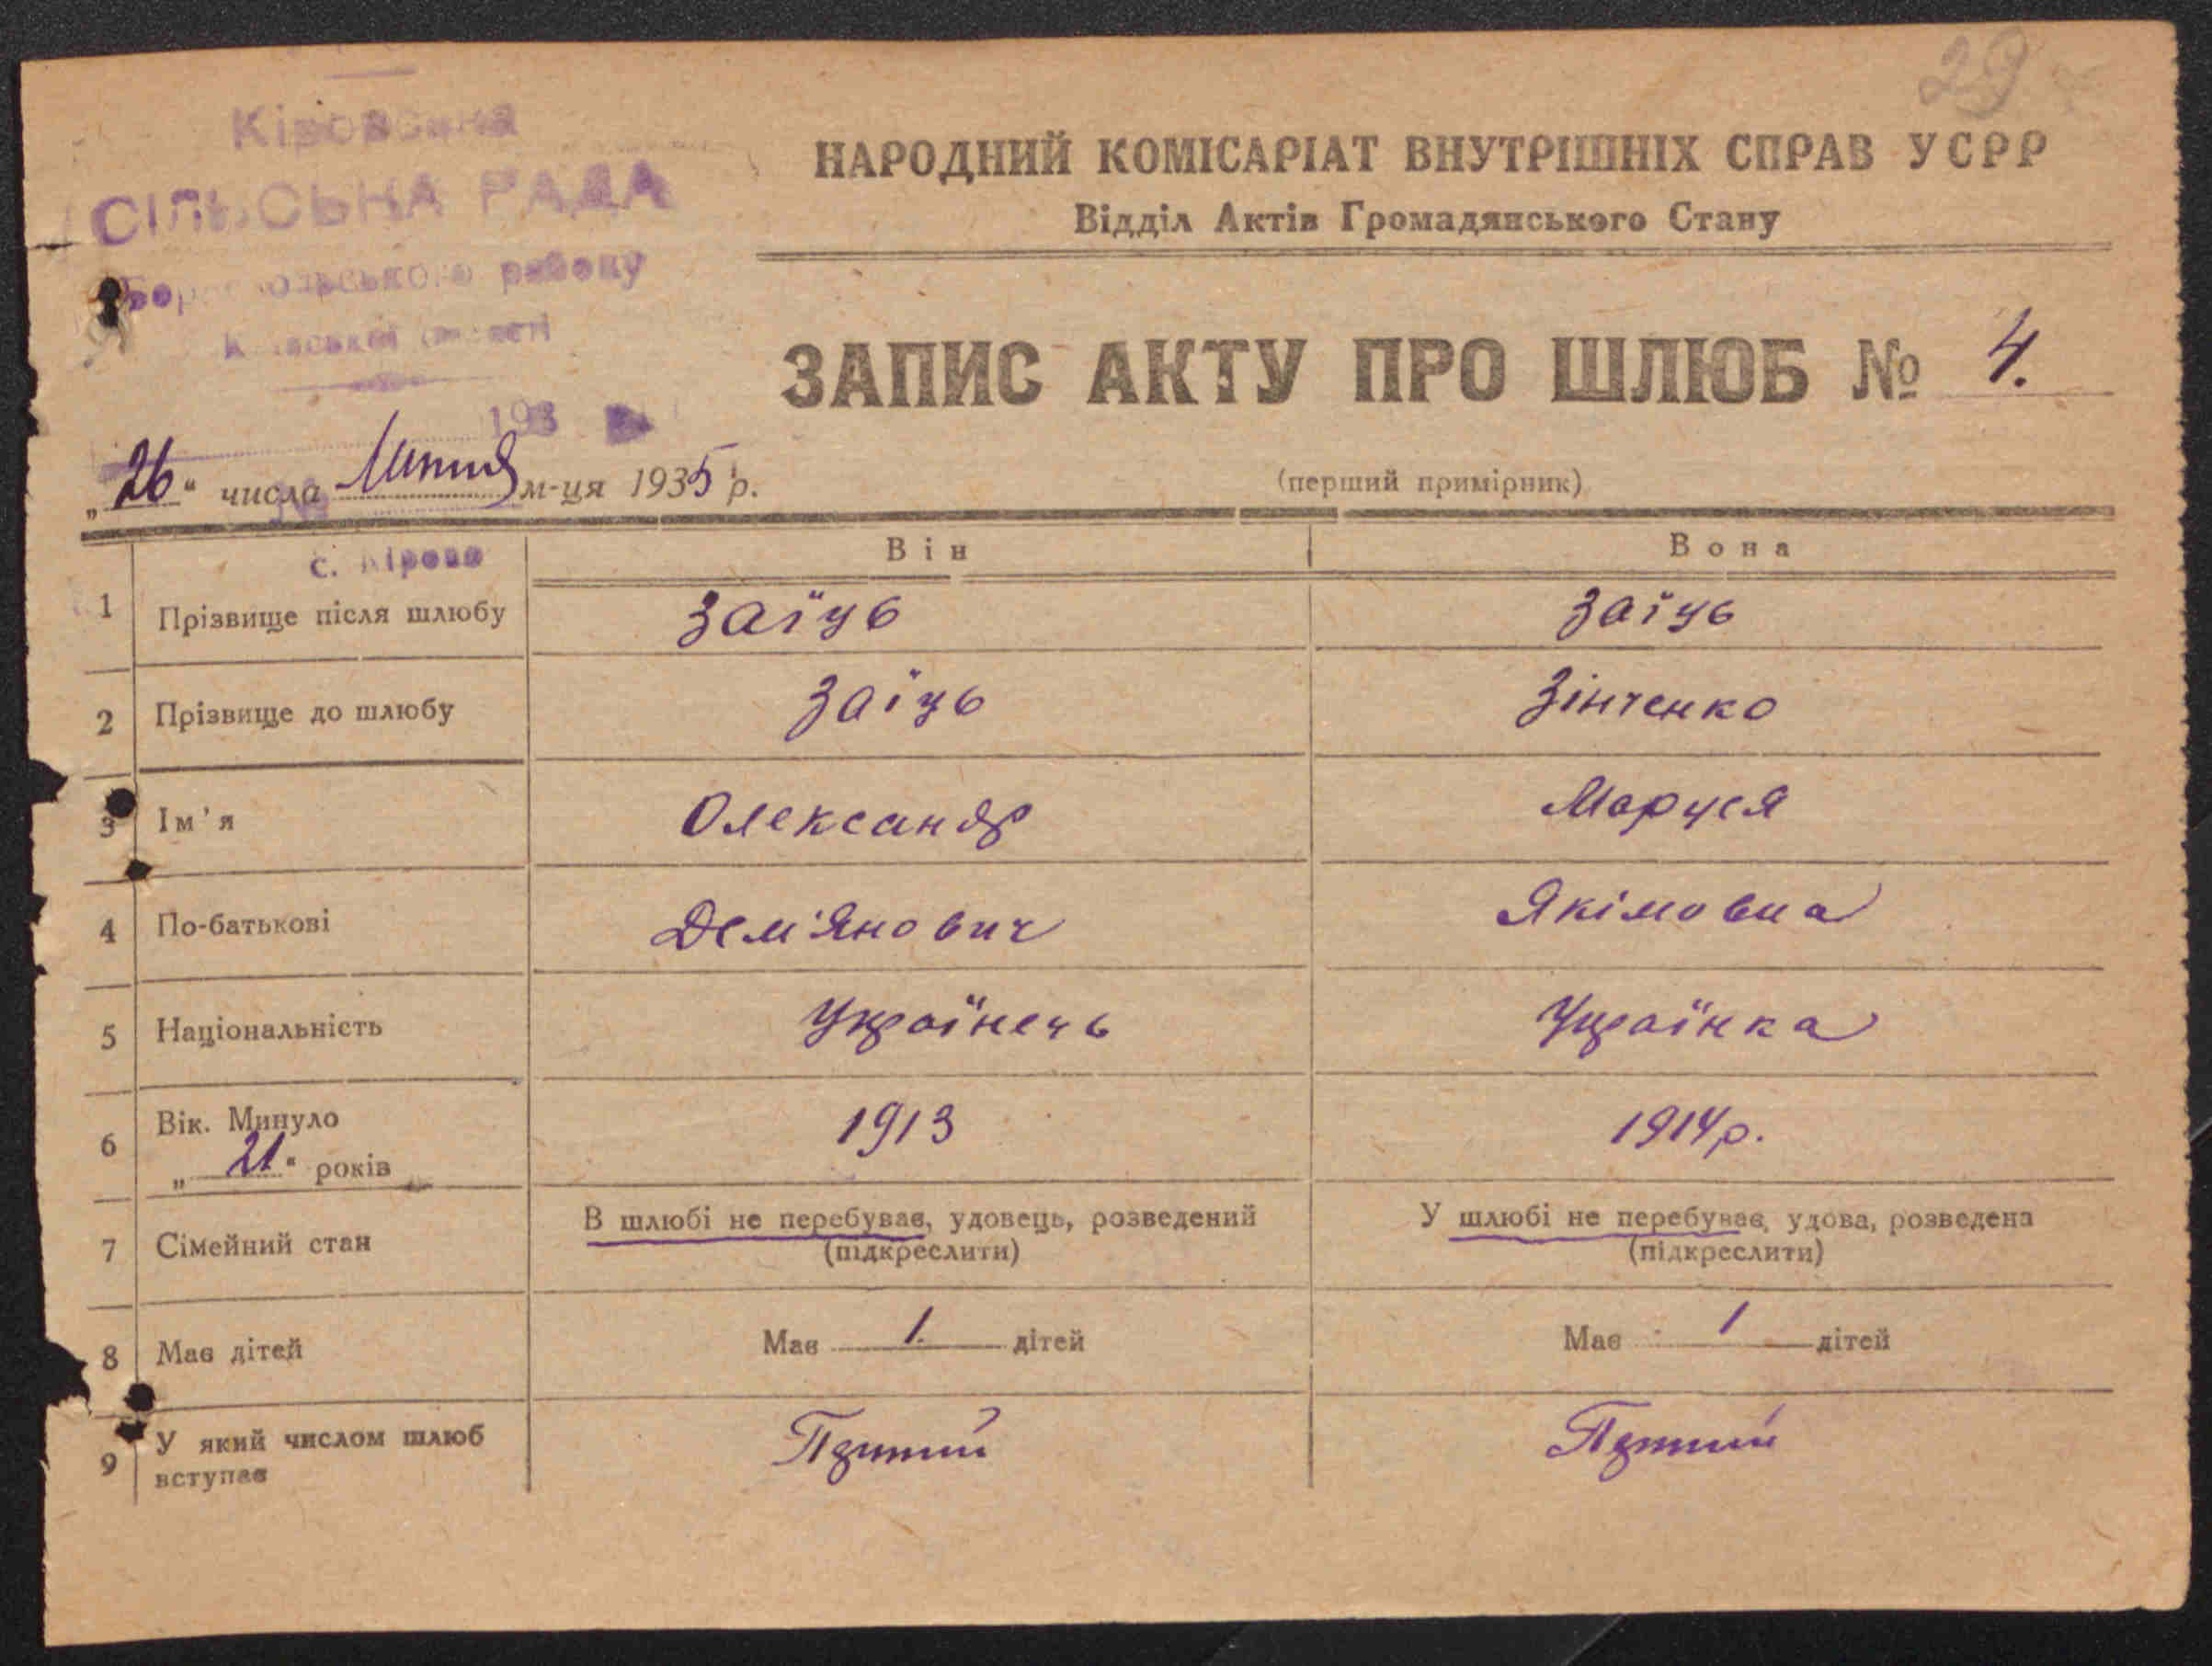 29
Кіровська
СІЛЬСЬКА РАДА
Бориспольського району
Київської області
193
НАРОДНИЙ КОМІСАРІАТ ВНУТРІШНІХ СПРАВ УСРР
Відділ Актів Громадянського Стану
ЗАПИС АКТУ ПРО ШЛЮБ № 4.
„26“ числа Липня м-ця 1935 р.
(перший примірник)
с. Кірово
Він Вона
1 Прізвище після шлюбу Заїць Заїць
2 Прізвище до шлюбу Заїць Зінченко
3 Ім’я Олександр Маруся
4 По-батькові Дем'янович Якімовна
5 Національність Українець Українка
6 Вік. Минуло „21“ років 1913 1914р.
7 Сімейний стан В шлюбі не перебував, удовець, розведений (підкреслити) У шлюбі не перебуває, удова, розведена (підкреслити)
8 Має дітей Має 1. дітей Має 1 дітей
9 У який числом шлюб вступає